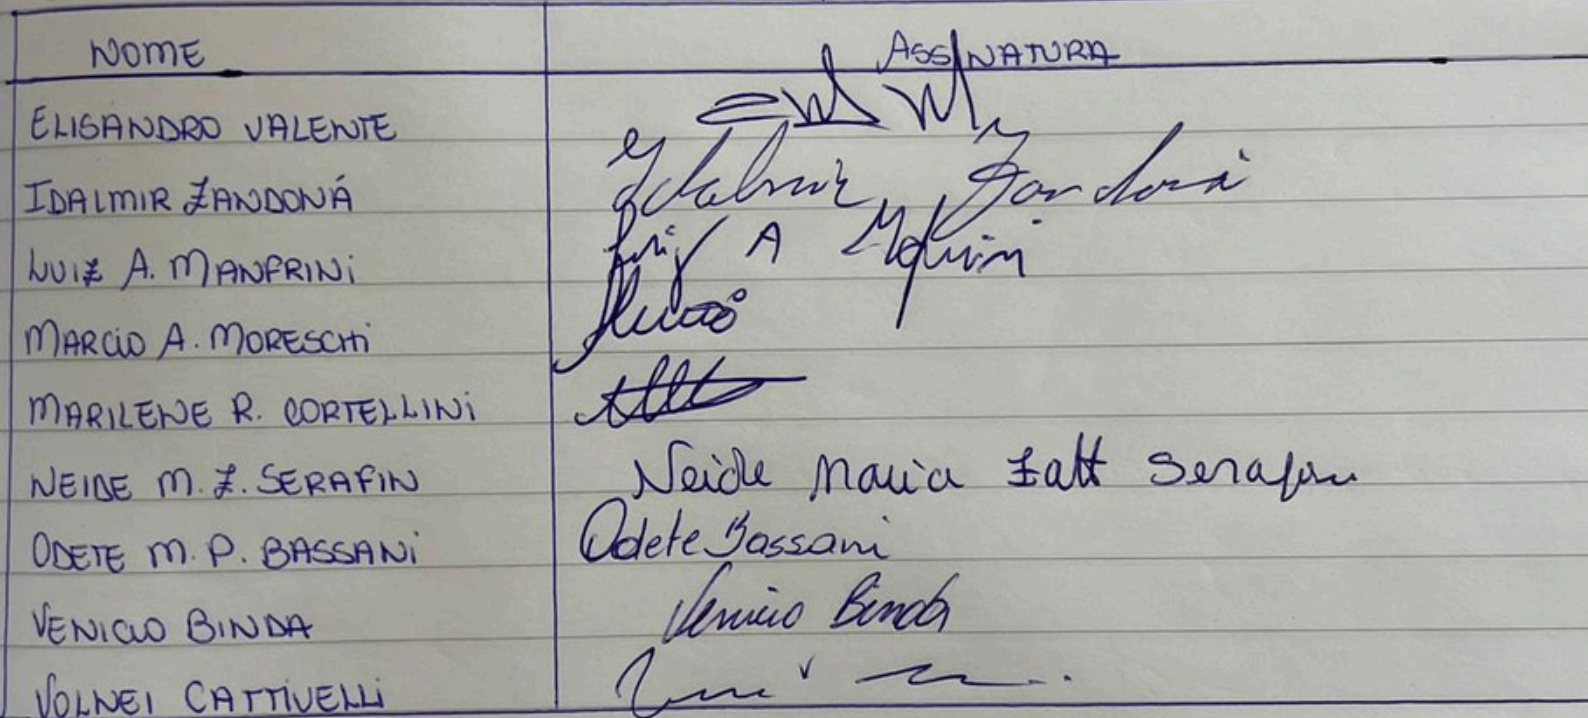 NOME ASSINATURA
ELISANDRO VALENTE
IDALMIR ZANDONÁ Idalmir Zandoná
LUIZ A. MANFRINI Luiz A
MARCIO A. MORESCHI
MARILENE R. CORTELLINI
NEIDE M. Z. SERAFIN Neide Maria Zatt Serafin
ODETE M. P. BASSANI Odete Bassani
VENICIO BINDA Venicio Binda
VOLNEI CATTIVELLI